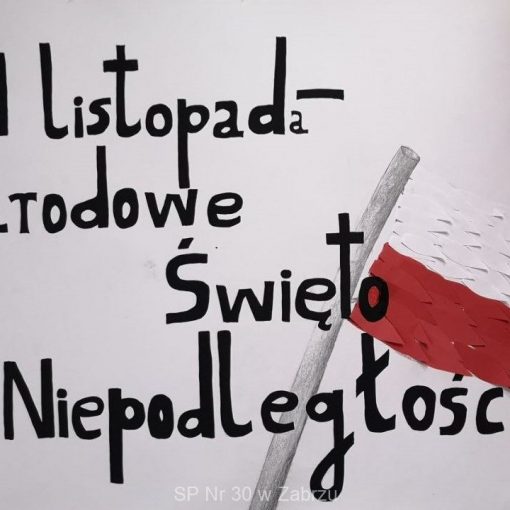 1 listopada-
arodowe
Święto
Niepodległośc
SP Nr 30 w Zabrzu